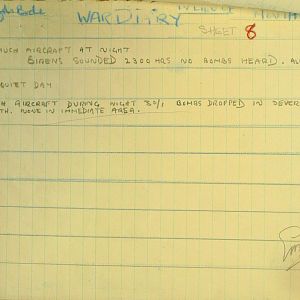 WAR DIARY
SHEET 8
MUCH AIRCRAFT AT NIGHT
SIRENS SOUNDED 2300 HRS NO BOMBS HEARD. AL
QUIET DAY
H AIRCRAFT DURING NIGHT 30/1 BOMBS DROPPED IN DEVER
TH. NONE IN IMMEDIATE AREA.